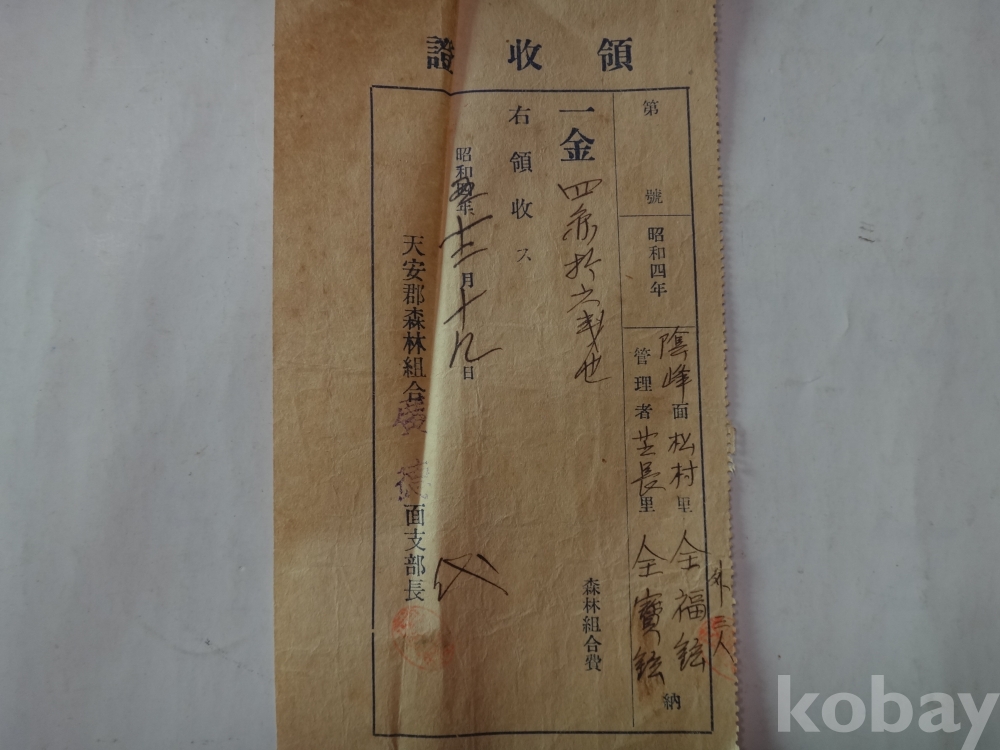 領收證
第 號
昭和四年
陰峰面松村里 全福鉉
外三人
管理者 芝長里 全寶鉉 納
一金 四
森林組合費
右領收ス
昭和 年十二月十九日
天安郡森林組合廣德面支部長
kobay